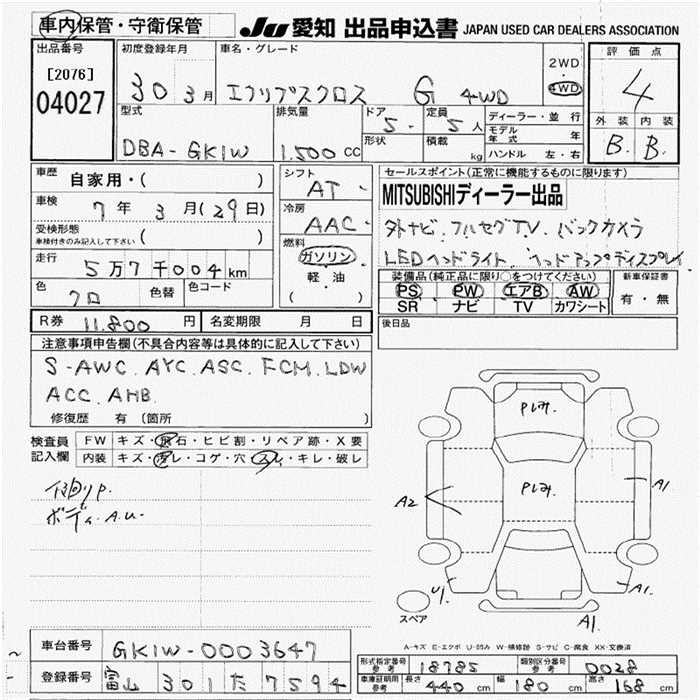 車内保管・守衛保管
JU 愛知 出品申込書 JAPAN USED CAR DEALERS ASSOCIATION
出品番号 初度登録年月 車名・グレード 評価点
[2076]
04027
30 3月 エクリプスクロス G 4WD
2WD
4WD
4
型式 排気量 ドア 定員 ディーラー・並行 外装 内装
DBA-GK1W 1.500 CC 5 5人
形状 積載 kg
モデル年式 年
ハンドル 左・右
B. B.
車歴 自家用・( )
シフト AT
セールスポイント(正常に機能するものに限ります)
MITSUBISHIディーラー出品
車検 7年 3月(29日)
冷房 AAC
外ナビ.フルセグTV.バックカメラ
受検形態
車検付きのみ記入して下さい ( )
燃料 ガソリン・軽・油 ( )
LEDヘッドライト.ヘッドアップディスプレイ
走行 5万7千004km
装備品(純正品に限り○をつけてください)
PS PW エアB AW
SR ナビ TV カワシート
新車保証書
有・無
色 クロ 色替 色コード
後日品
R券 11.800 円 名変期限 月 日
注意事項申告欄(不具合内容等は具体的に記入して下さい)
S-AWC. AYC. ASC. FCM. LDW
ACC. AHB.
修復歴 有(箇所 )
検査員記入欄 FW キズ・飛石・ヒビ割・リペア跡・X要
内装 キズ・汚レ・コゲ・穴・スレ・キレ・破レ
ボディ.A.U.
Pしみ.
Pしみ.
A2
A1
U1
A1.
A1.
スペア
A-キズ E-エクボ U-凹み W-補修跡 S-サビ C-腐食 XX-交換済
車台番号 GK1W-0003647
登録番号 301 た 7594
形式指定番号 参考 18785 類別区分番号 参考 0028
車庫証明用 参考 長さ 440 cm 幅 180 cm 高さ 168 cm